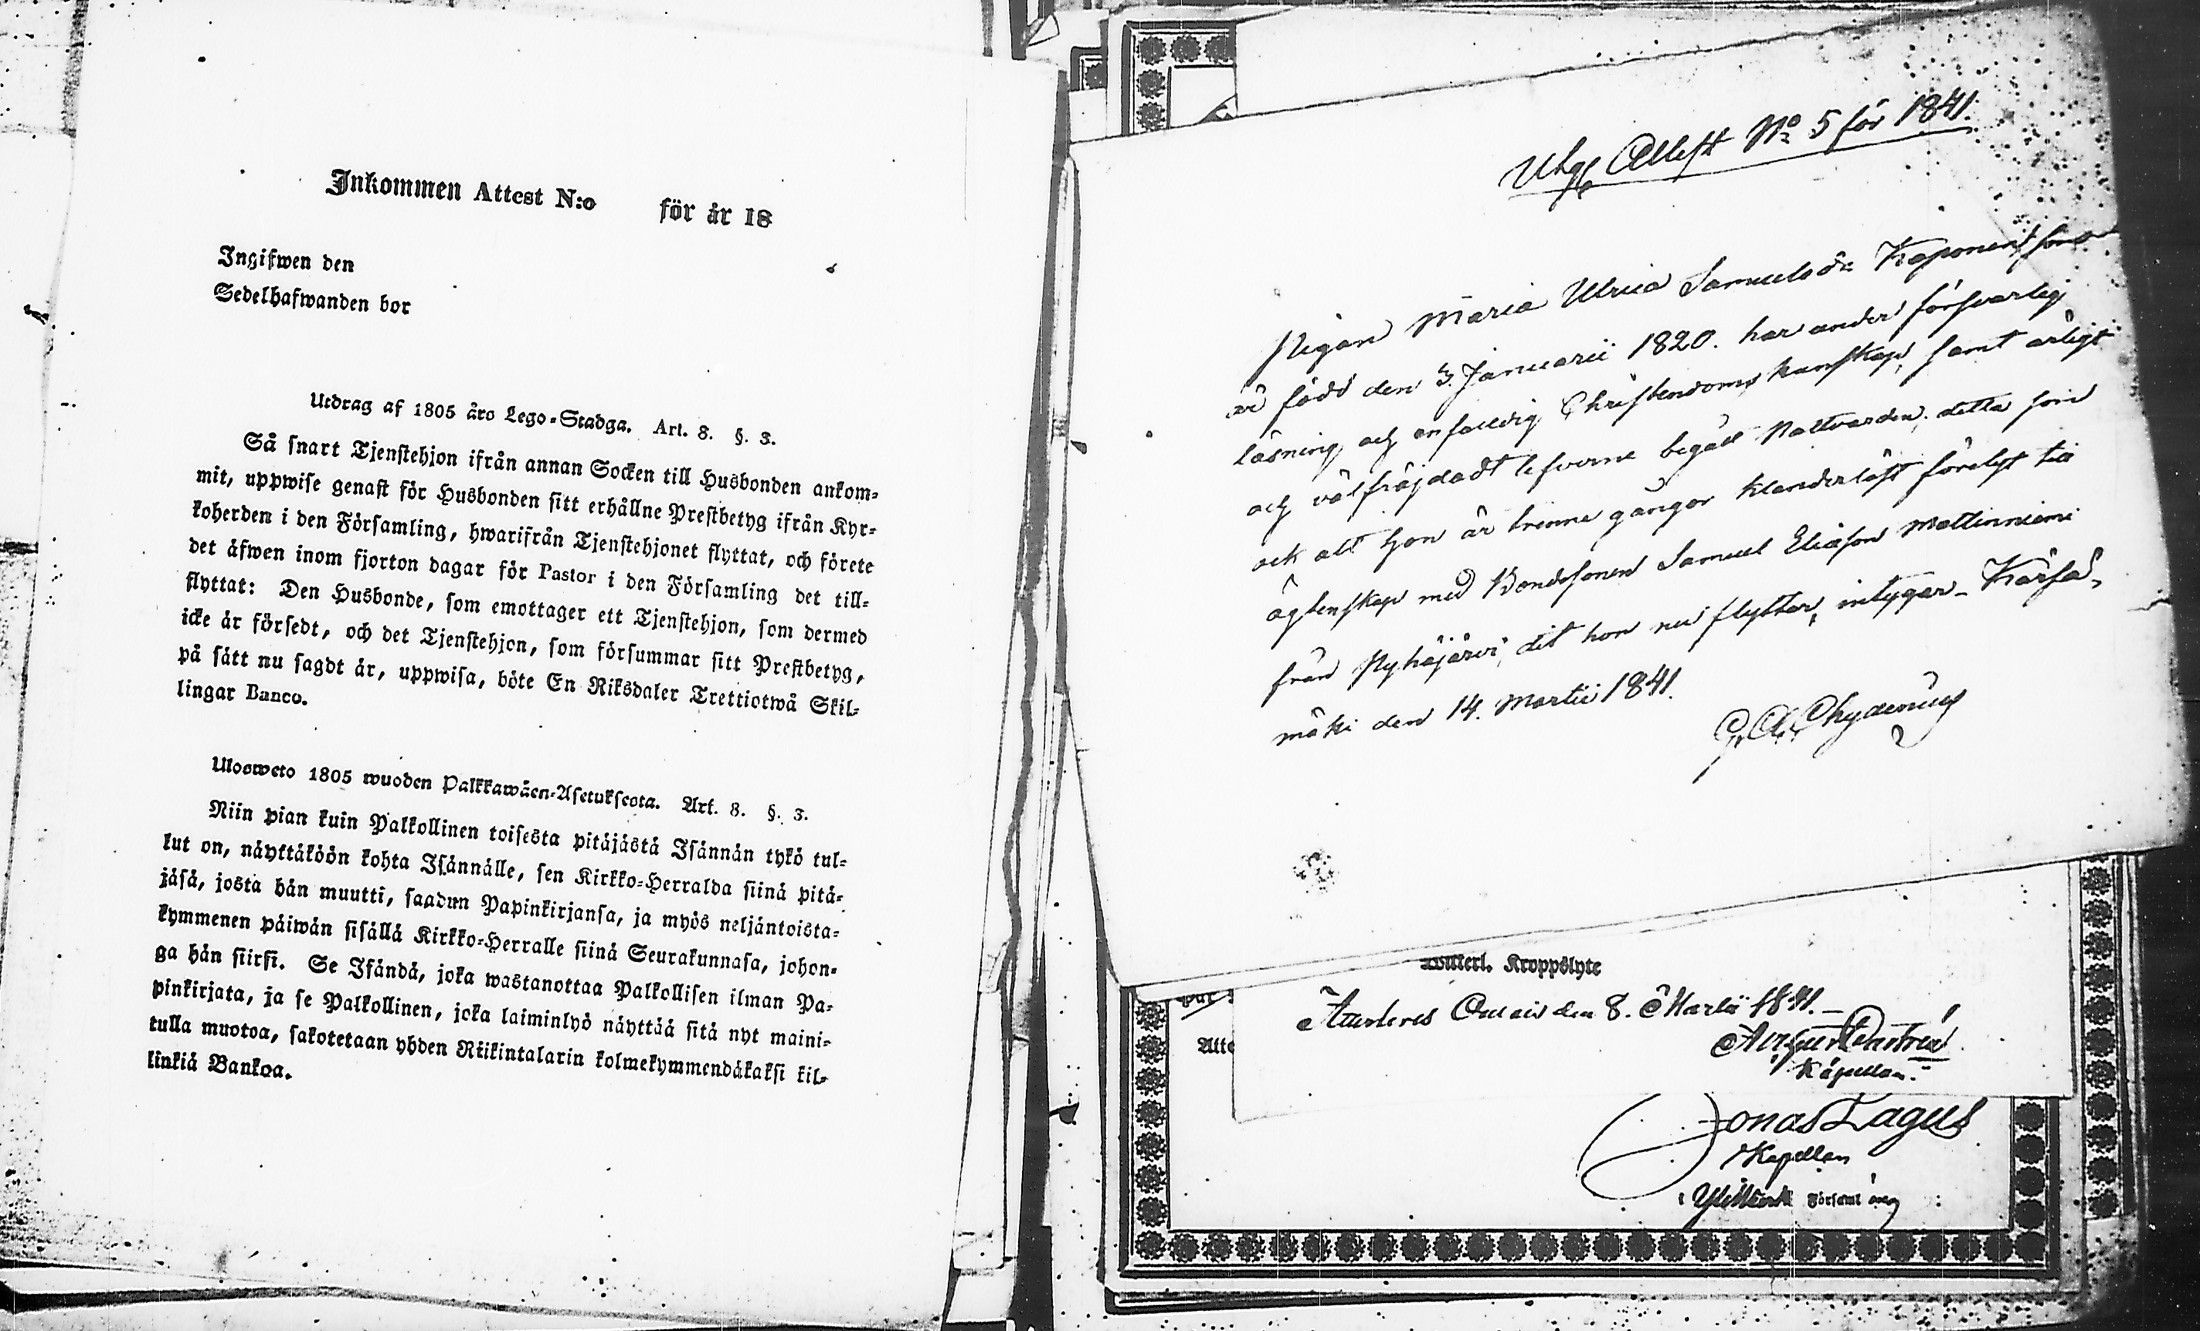 Inkommen Attest N:o för år 18
Ingifwen den
Sedelhafwanden bor
Utdrag af 1805 års Lego-Stadga. Art. 8. §. 3.
Så snart Tjenstehjon ifrån annan Socken till Husbonden ankom-
mit, uppwise genast för Husbonden sitt erhållne Prestbetyg ifrån Kyr-
koherden i den Församling, hwarifrån Tjenstehjonet flyttat, och förete
det äfwen inom fjorton dagar för Pastor i den Församling det till-
flyttat: Den Husbonde, som emottager ett Tjenstehjon, som dermed
icke är försedt, och det Tjenstehjon, som försummar sitt Prestbetyg,
på sätt nu sagdt är, uppwisa, böte En Riksdaler Trettiotwå Skil-
lingar Banco.
Ulosweto 1805 wuoden Palkkawäen-Asetuksesta. Art. 8. §. 3.
Niin pian kuin Palkollinen toisesta pitäjästä Isännän tykö tul-
lut on, näyttäköön kohta Isännälle, sen Kirkko-Herralda siinä pitä-
jäsä, josta hän muutti, saadun Papinkirjansa, ja myös neljäntoista-
kymmenen päiwän sisällä Kirkko-Herralle siinä Seurakunnasa, johon-
ga hän siirsi. Se Isändä, joka wastanottaa Palkollisen ilman Pa-
pinkirjata, ja se Palkollinen, joka laiminlyö näyttää sitä nyt maini-
tulla muotoa, sakotetaan yhden Riikintalarin kolmekymmendäkaksi kil-
linkiä Bankoa.
Utg. Attest No 5 för 1841.
Pigan Maria Ulrica Samuelsdr Kaponen som
är född den 3 Januarii 1820. har under försvarlig
läsning och enfaldig Christendoms kunskap, samt ärligt
och välfräjdadt lefverne begått Nattvarden, detta som
ock att hon är trenne gångor klanderlöst förelyst till
ägtenskap med Bondesonen Samuel Eliasson Mattinniemi
från Pyhäjärvi, dit hon nu flyttar, intygar – Kärsä-
mäki den 14. Martii 1841.
G. A. Chydenius
Wiitterl. Kroppslyte
den 8. Martii 1841.
Kapellan.
Atte
Jonas Lagus
Kapellan
i Ylivieska Församling